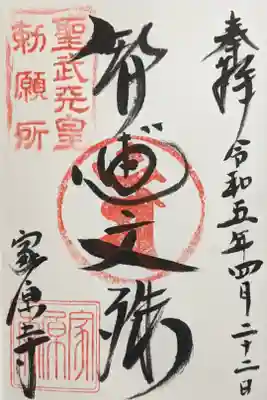 奉拝
令和五年四月二十二日
聖武天皇
勅願所
智恵文殊
家原寺
家原